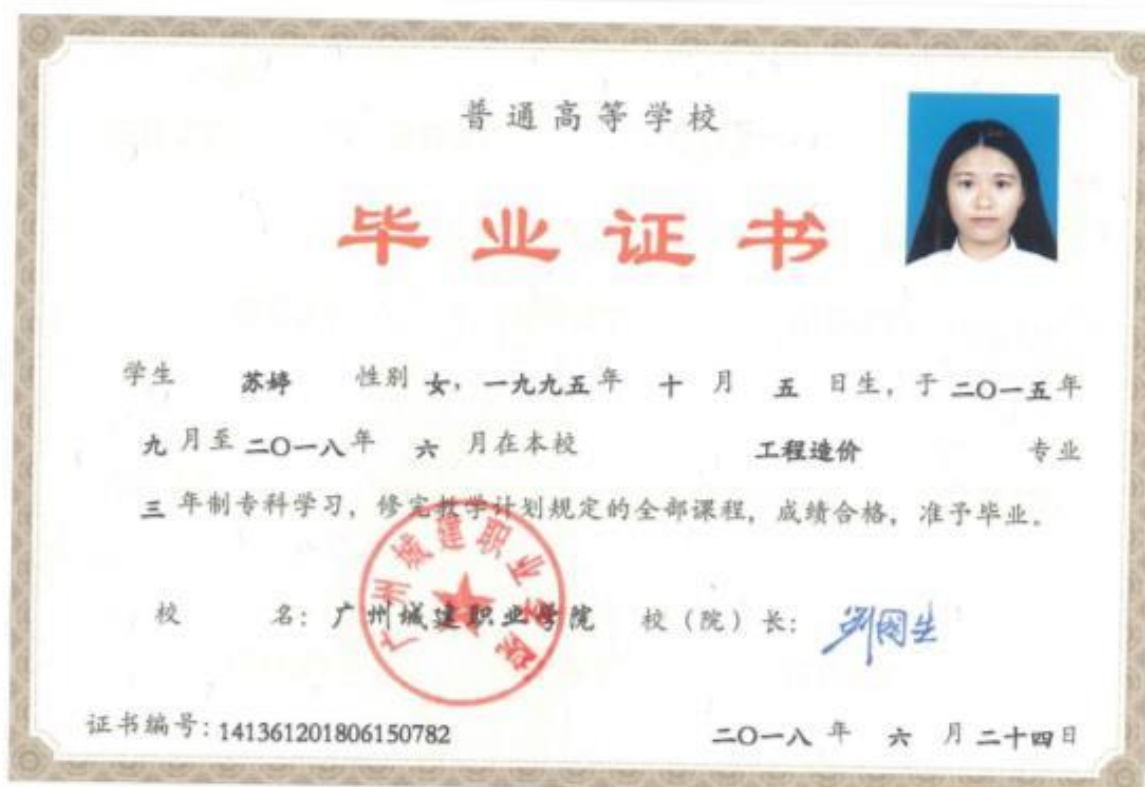 普通高等学校
毕业证书
学生 苏婷 性别 女，一九九五年 十 月 五 日生，于二〇一五年
九月至二〇一八年 六 月在本校 工程造价 专业
三 年制专科学习，修完教学计划规定的全部课程，成绩合格，准予毕业。
广州城建职业学院
校 名：广州城建职业学院 校（院）长：刘国生
证书编号：141361201806150782 二〇一八 年 六 月 二十四日